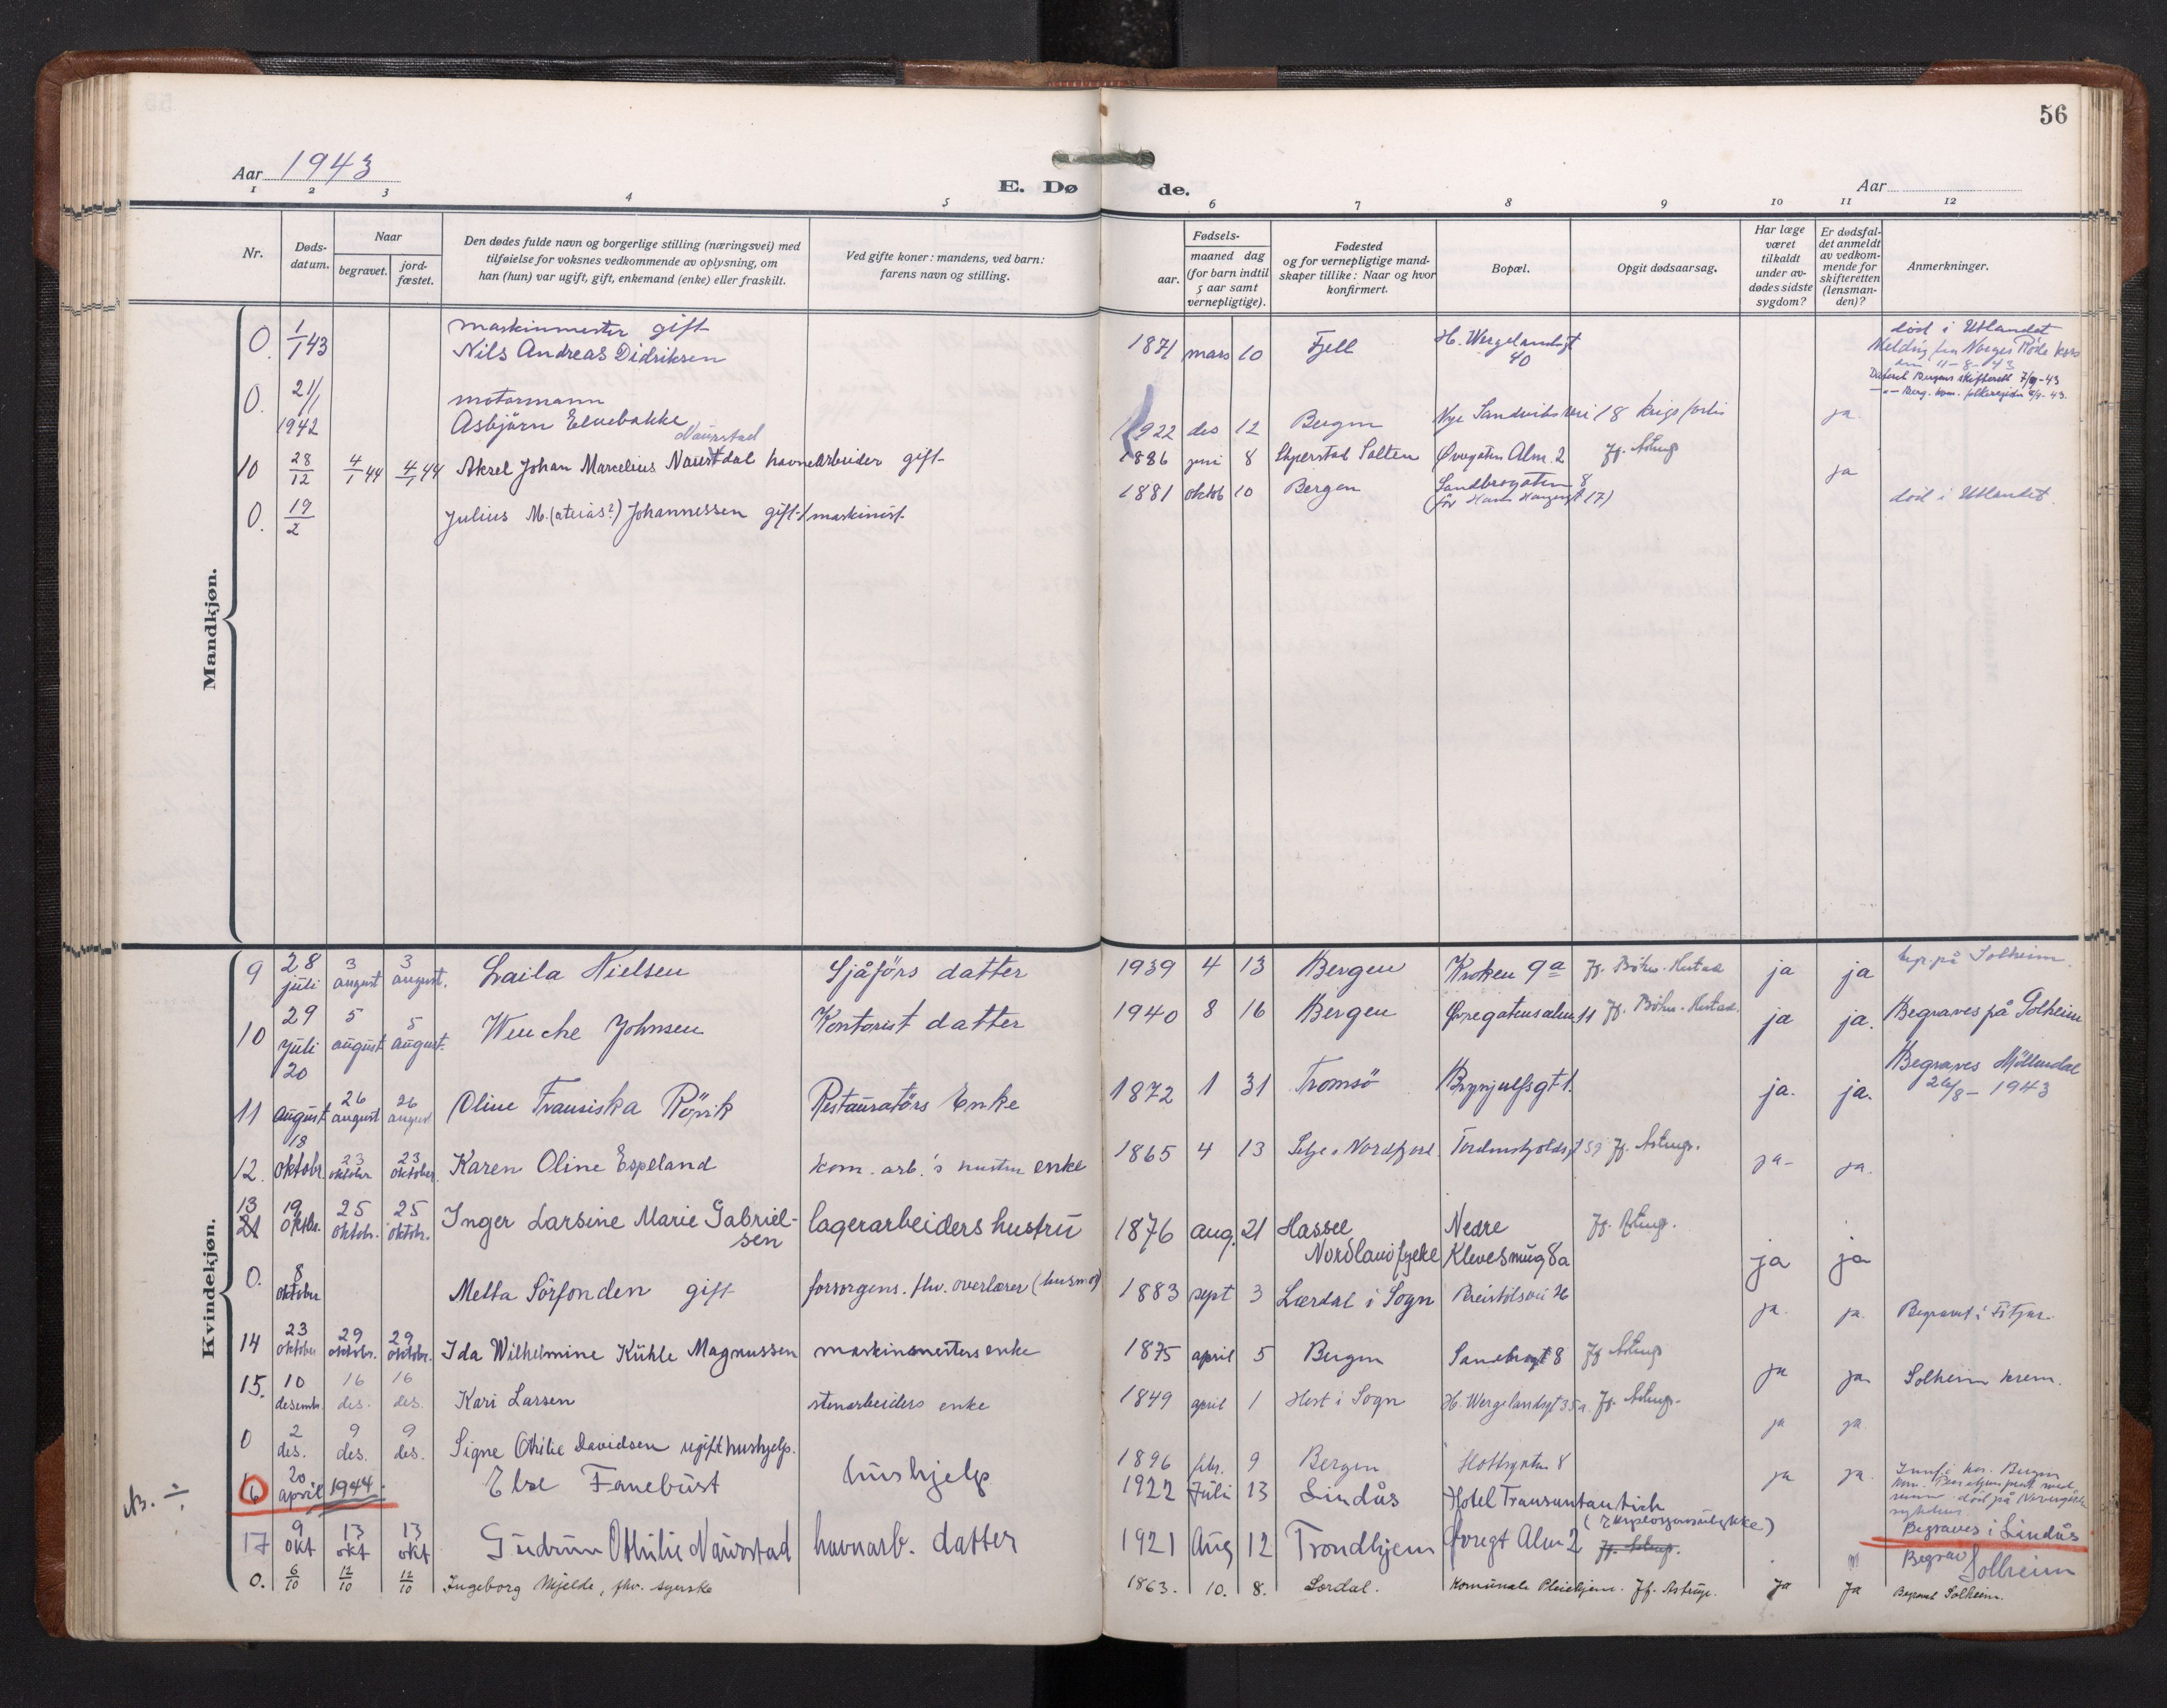 56
Aar 1943
E. Dø de.
Aar
1 2 3 4 5 6 7 8 9 10 11 12
Nr.
Døds-
datum.
Naar
begravet.
jord-
fæstet.
Den dødes fulde navn og borgerlige stilling (næringsvei) med
tilføielse for voksnes vedkommende av oplysning, om
han (hun) var ugift, gift, enkemand (enke) eller fraskilt.
Ved gifte koner: mandens, ved barn:
farens navn og stilling.
Fødsels-
aar.
maaned dag
(for barn indtil
5 aar samt
vernepligtige).
Fødested
og for vernepligtige mand-
skaper tillike: Naar og hvor
konfirmert.
Bopæl.
Opgit dødsaarsag.
Har læge
været
tilkaldt
under av-
dødes sidste
sygdom?
Er dødsfal-
det anmeldt
av vedkom-
mende for
skifteretten
(lensman-
den)?
Anmerkninger.
Mandkjøn.
0. 1/1 43 maskinmester gift
Nils Andreas Didriksen 1871 mars 10 Fjell H. Wergelandsgt
40 død i Utlandet
Melding fra Norges Røde Kors
11-8-43
0. 21/1
1942 motormann
Asbjörn Elvebakke 1922 des 12 Bergen Nye Sandviksvei 18 krigsforlis ja
Naurstad
10 28/12 4/1 44 4/1 44 Aksel Johan Marcelius Naurstdal havnearbeider gift 1886 juni 8 Salten Øvregaten Alm. 2 Jf. Astrup ja
0. 19/2 Julius M. (atias?) Johannessen gift / maskinist 1881 oktob 10 Bergen Sandbrogaten 8
17) død i Utlandet.
Kvindekjøn.
9 28
juli 3
august 3
august. Laila Nielsen Sjåförs datter 1939 4 13 Bergen Kroken 9a ja ja på Solheim.
10 29
juli 5
august 5
august. Wenche Johnsen Kontorist datter 1940 8 16 Bergen Øvregatensalm. 11 ja ja. Begraves på Solheim
11 20
august 26
august 26
august Oline Fransiska Rörvik Restauratörs Enke 1872 1 31 Tromsö Brynjulfsgt 1. ja. ja. Begraves Möllendal
26/8 - 1943
12. 18
oktobr. 23
oktobr 23
oktober. Karen Oline Espeland kom. arb.'s enke 1865 4 13 Selje i Nordfjord Jf. Astrup. ja- ja.
13
21 19
oktbr. 25
oktobr. 25
oktobr. Inger Larsine Marie Gabriel-
sen lagerarbeiders hustru 1876 aug. 21 Hassel
Nordland fylke Nedre
Klevesmug 8a Jf. Astrup. ja ja
0. 8
oktober Metta Sörfonden gift forsorgens. fhv. overlærer (husmor) 1883 sept 3 Lærdal i Sogn ja. ja. Begravet i Fitjar.
14 23
oktober 29
oktobr. 29
oktobr. Ida Wilhelmine Kühle Magnussen maskinmesters enke 1875 april 5 Bergen Sandbrogt 8 Jf Astrup ja ja Solheim krem.
15. 10
desemb. 16
des. 16
des. Kari Larsen stenarbeiders enke 1849 april 1 i Sogn H. Wergelandsgt 35a. Jf. Astrup. ja ja.
0 2
des. 9
des. 9
des. Signe Othilie Davidsen ugift hushjelp. 1896 febr. 9 Bergen 8 ja ja.
÷ 6 20
april 1944. Else Fanebust hushjelp 1922 Juli 13 Lindås Hotel Transuntantich
(Eksplosjonsulykke) død på
sykehus
Begraves i Lindås
17 9
okt 13
okt 13
okt Gudrun Othilie Naurstad havnarb. datter 1921 Aug 12 Trondhjem Øvregt Alm 2 Begrav
Solheim
0. 6/10 12/10 12/10 Ingeborg Mjelde, fhv. syerske 1863. 10. 8. Lærdal. Komunale Pleiehjem. Jf. Astrup. ja ja Begravet Solheim.